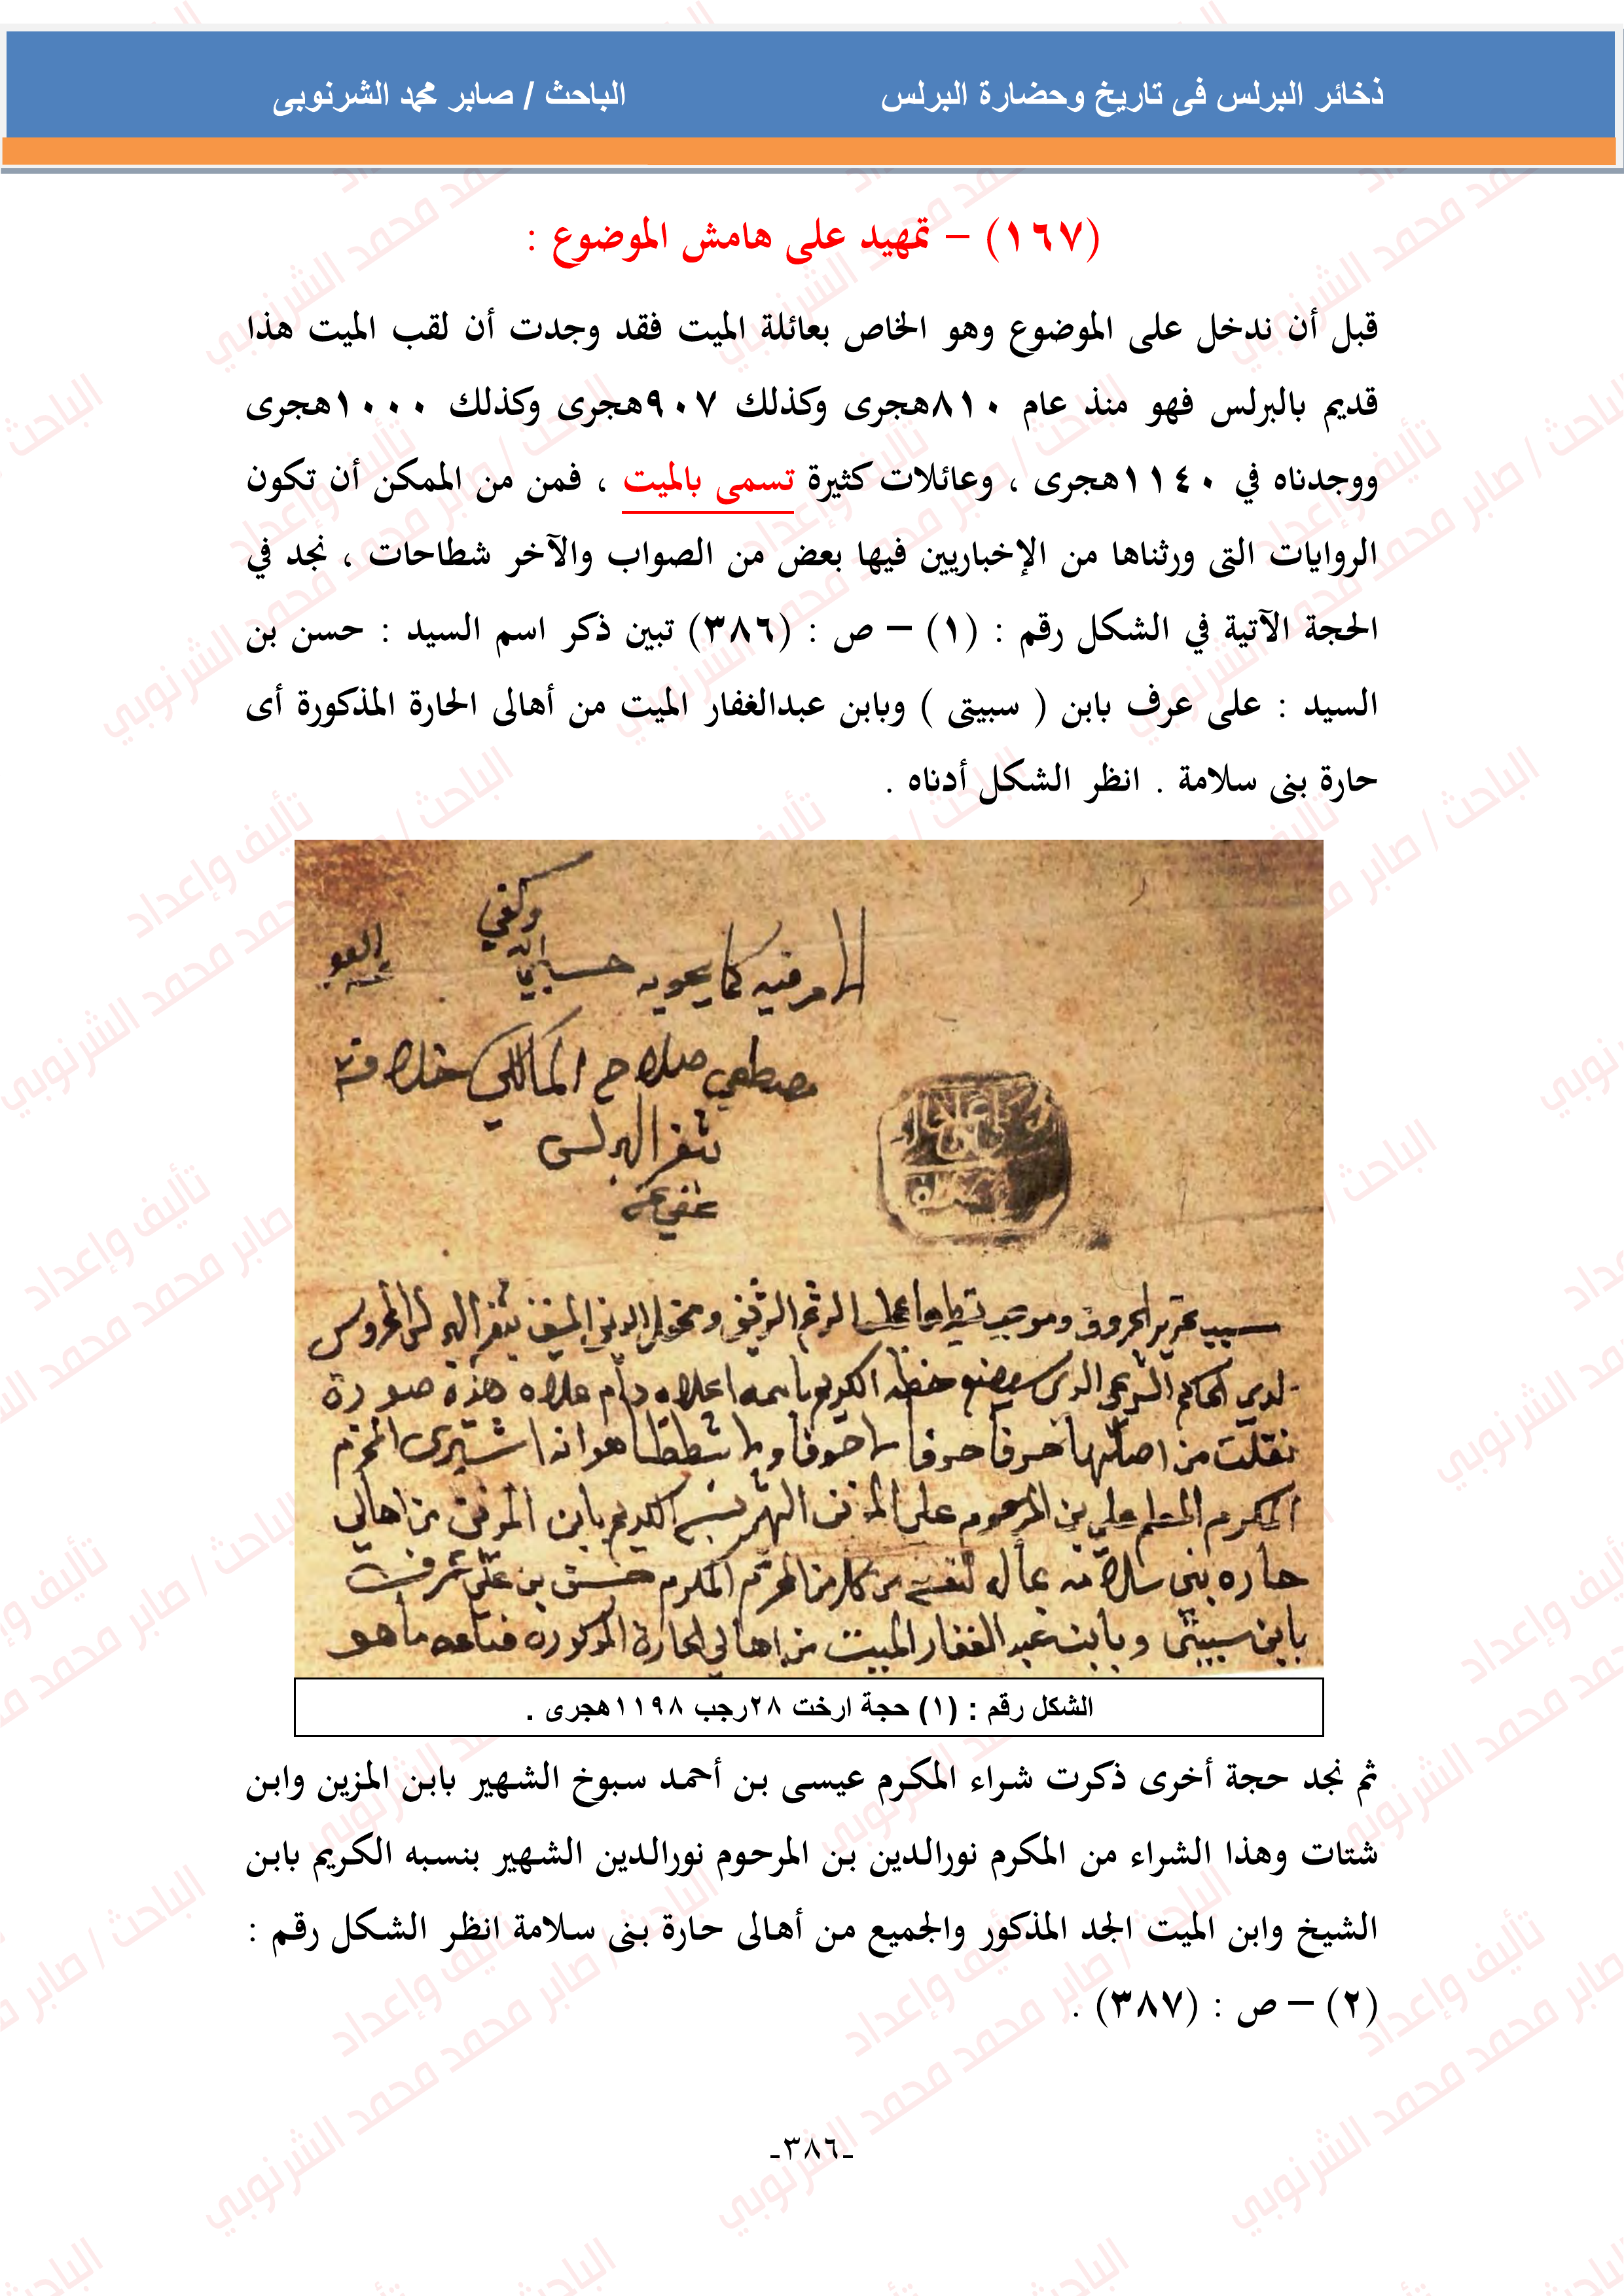 ذخائر البرلس فى تاريخ وحضارة البرلس
الباحث / صابر محمد الشرنوبى
(١٦٧) – تمهيد على هامش الموضوع :
قبل أن ندخل على الموضوع وهو الخاص بعائلة الميت فقد وجدت أن لقب الميت هذا
قديم بالبرلس فهو منذ عام ٨١٠هجرى وكذلك ٩٠٧هجرى وكذلك ١٠٠٠هجرى
ووجدناه في ١١٤٠هجرى ، وعائلات كثيرة تسمى بالميت ، فمن من الممكن أن تكون
الروايات التى ورثناها من الإخباريين فيها بعض من الصواب والآخر شطاحات ، نجد في
الحجة الآتية في الشكل رقم : (١) – ص : (٣٨٦) تبين ذكر اسم السيد : حسن بن
السيد : على عرف بابن ( سبيتى ) وبابن عبدالغفار الميت من أهالى الحارة المذكورة أى
حارة بنى سلامة . انظر الشكل أدناه .
وكفي
الامر فيه كما يحويه حسبي الله
مصطفى صلاح المالكي خلافة
بثغر البرلس
عفي عنه
سبب تحرير الحروف وموجب تسطيرها على الرقم الوثيق
بثغر البرلس المحروس
لدي الحاكم الشرعي الذي سيضع خطه الكريم باسمه اعلاه دام علاه هذه صورة
نقلت من اصلها حرفا حرفا
هو انه اشترى المحترم
المكرم المعلم علي بن المرحوم على
الشهير بنسبه الكريم بابن
من اهالي
حارة بنى سلامة بمال لنفسه من
المحترم المكرم حسن بن علي عرف
بابن سبيتى وبابن عبد الغفار الميت من اهالي الحارة المذكورة فباعه ما هو
الشكل رقم : (١) حجة ارخت ٢٨رجب ١١٩٨هجرى .
ثم نجد حجة أخرى ذكرت شراء المكرم عيسى بن أحمد سبوخ الشهير بابن المزين وابن
شتات وهذا الشراء من المكرم نورالدين بن المرحوم نورالدين الشهير بنسبه الكريم بابن
الشيخ وابن الميت الجد المذكور والجميع من أهالى حارة بنى سلامة انظر الشكل رقم :
(٢) – ص : (٣٨٧) .
-٣٨٦-
تأليف وإعداد
الباحث / صابر محمد محمد الشرنوبي